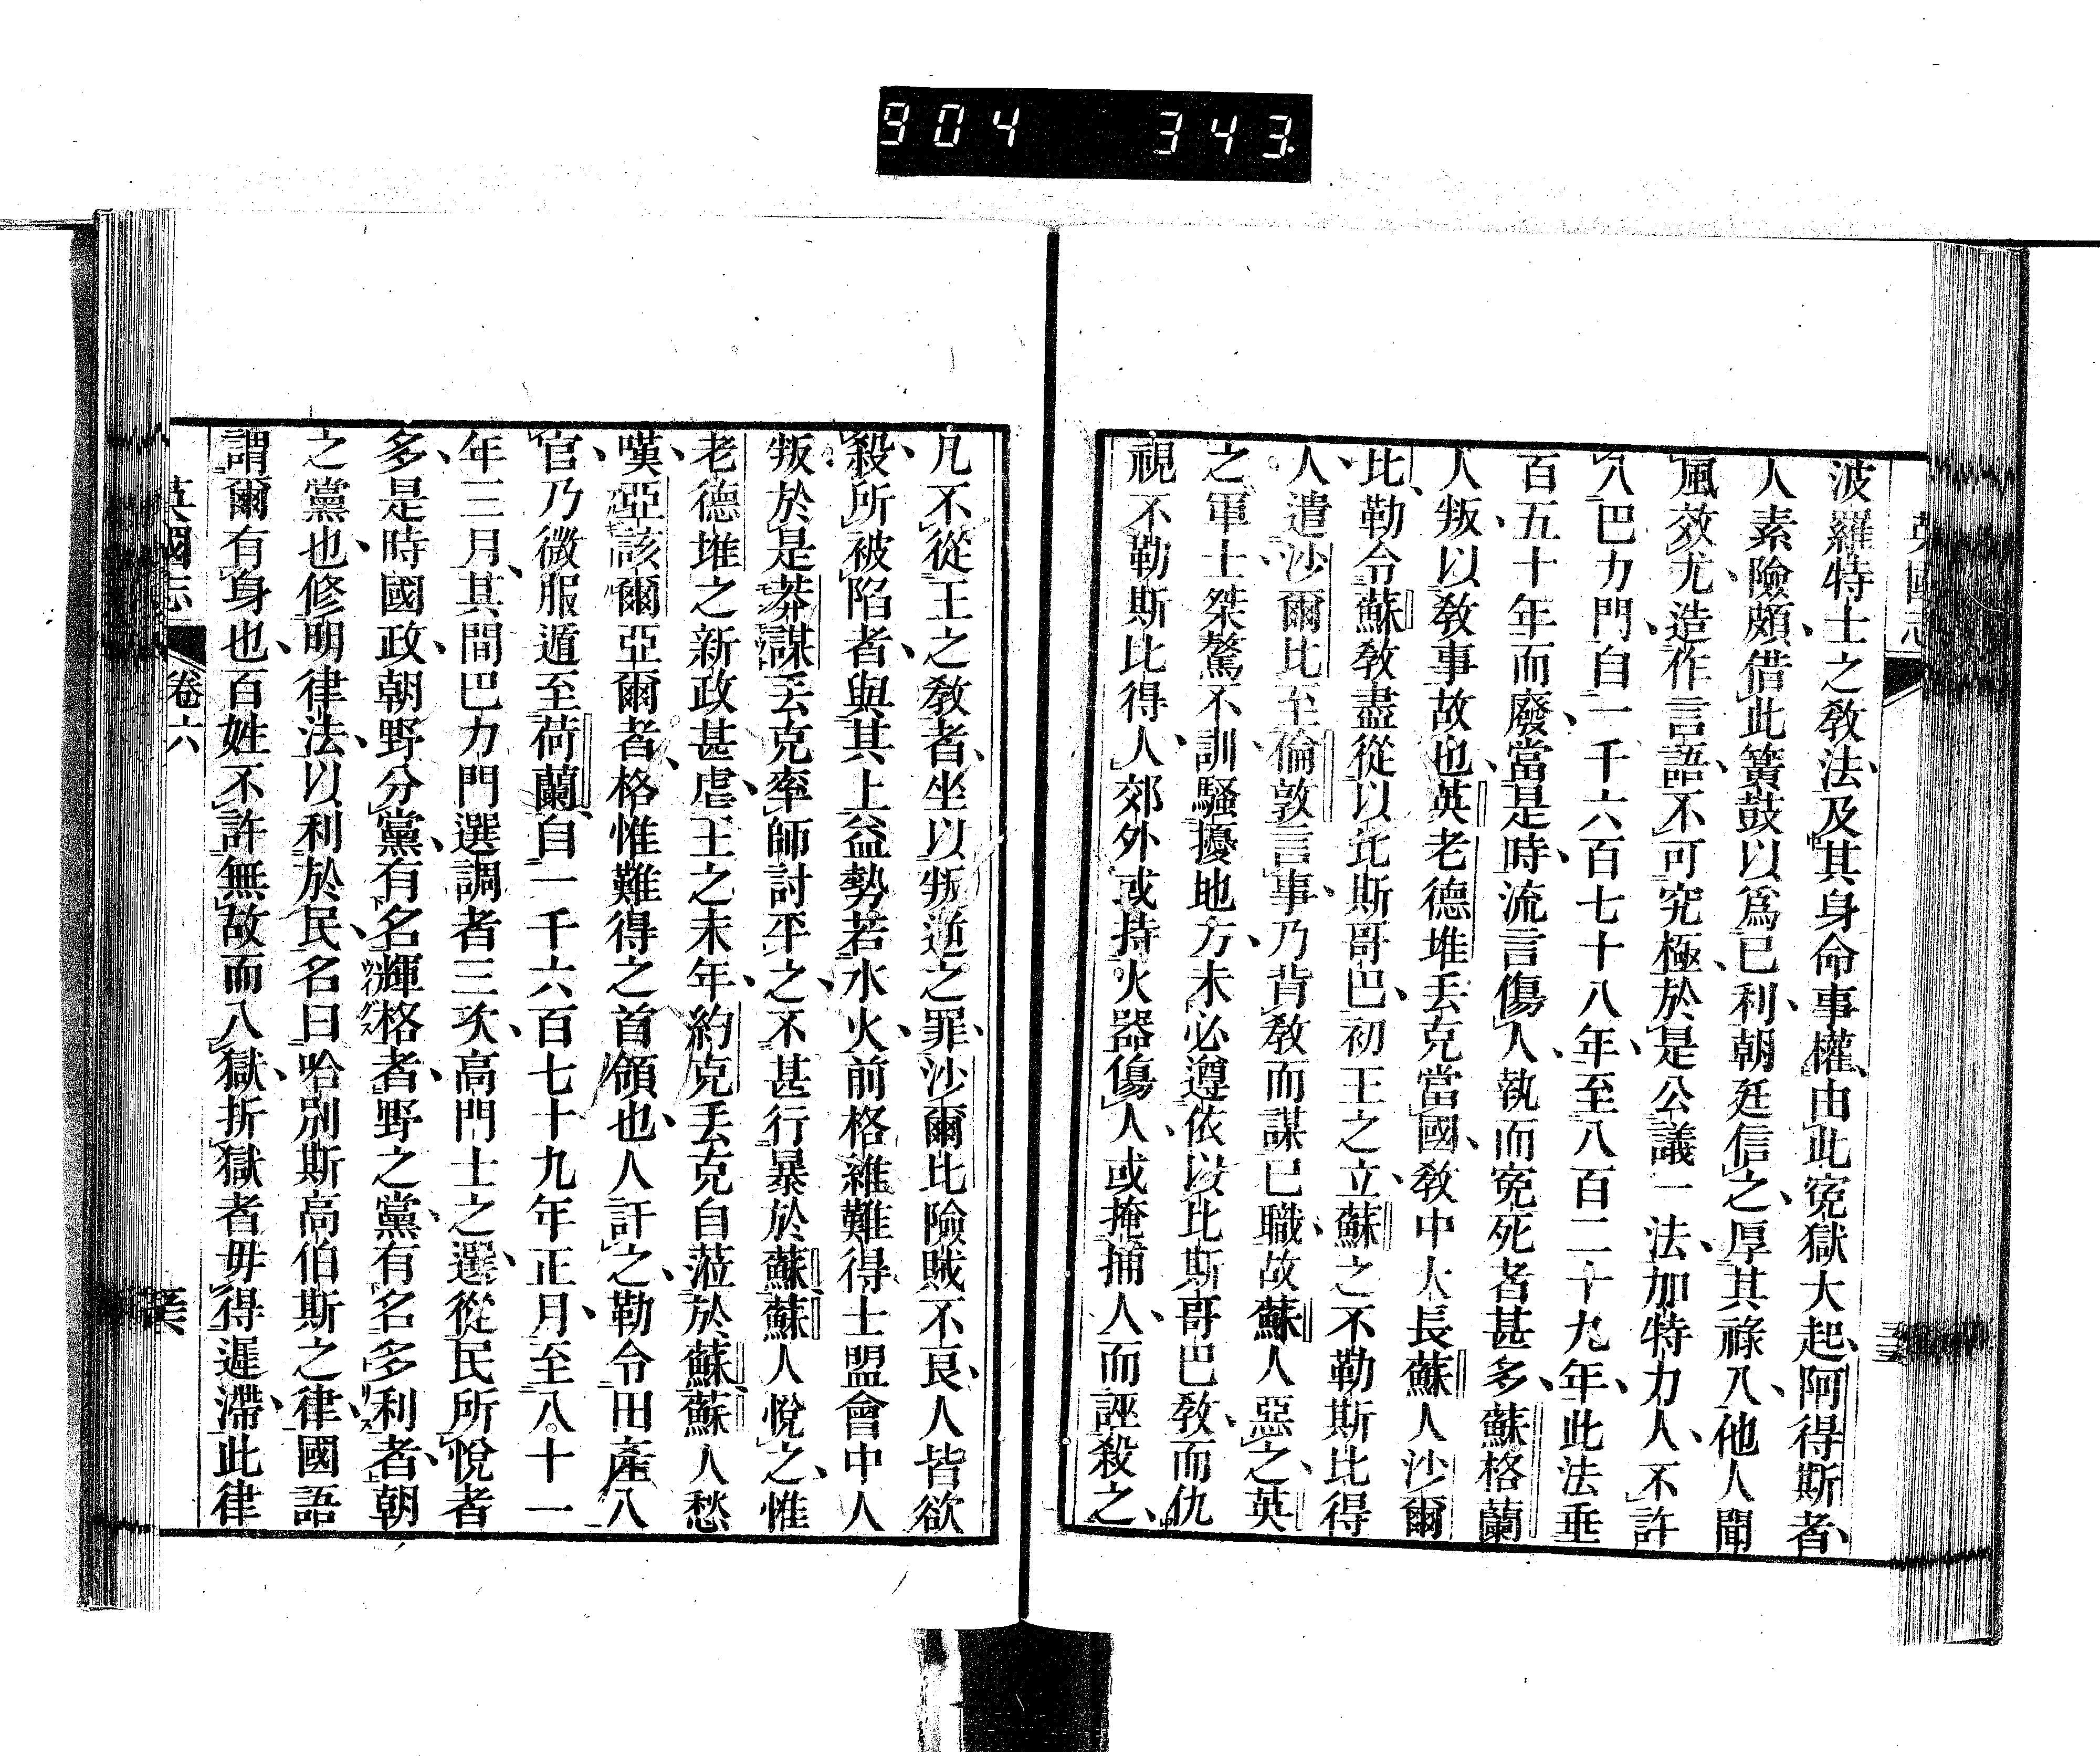 904 343
英國志
波羅特士之敎法及其身命事權由此寃獄大起阿得斯者
人素險頗借此簧鼓以爲已利朝廷信之厚其祿八他人聞
風效尤造作言語不可究極於是公議一法加特力人不許
八巴力門自一千六百七十八年至八百二十九年此法垂
百五十年而廢當是時流言傷人執而寃死者甚多蘇格蘭
人叛以敎事故也英老德堆丟克當國敎中大長蘇人沙爾
比勒令蘇敎盡從以比斯哥巴初王之立蘇之不勒斯比得
人遣沙爾比至倫敦言事乃背敎而謀已職故蘇人惡之英
之軍士桀驁不訓騷擾地方未必遵依以比斯哥巴敎而仇
視不勒斯比得人郊外或持火器傷人或掩捕人而誣殺之
凡不從王之敎者坐以叛逆之罪沙爾比險賊不良人皆欲
殺所被陷者與其上益勢若水火前格維難得士盟會中人
叛於是莽謀丟克率師討平之不甚行暴於蘇蘇人悅之惟
老德堆之新政甚虐王之末年約克丟克自蒞於蘇蘇人愁
嘆亞該爾亞爾者格惟難得之首領也人訐之勒令田產八
官乃微服遁至荷蘭自一千六百七十九年正月至八十一
年三月其間巴力門選調者三次高門士之選從民所悅者
多是時國政朝野分黨有名輝格者野之黨有名多利者朝
之黨也修明律法以利於民名曰哈別斯高伯斯之律國語
謂爾有身也百姓不許無故而八獄折獄者毋得遲滯此律
英國志 卷六